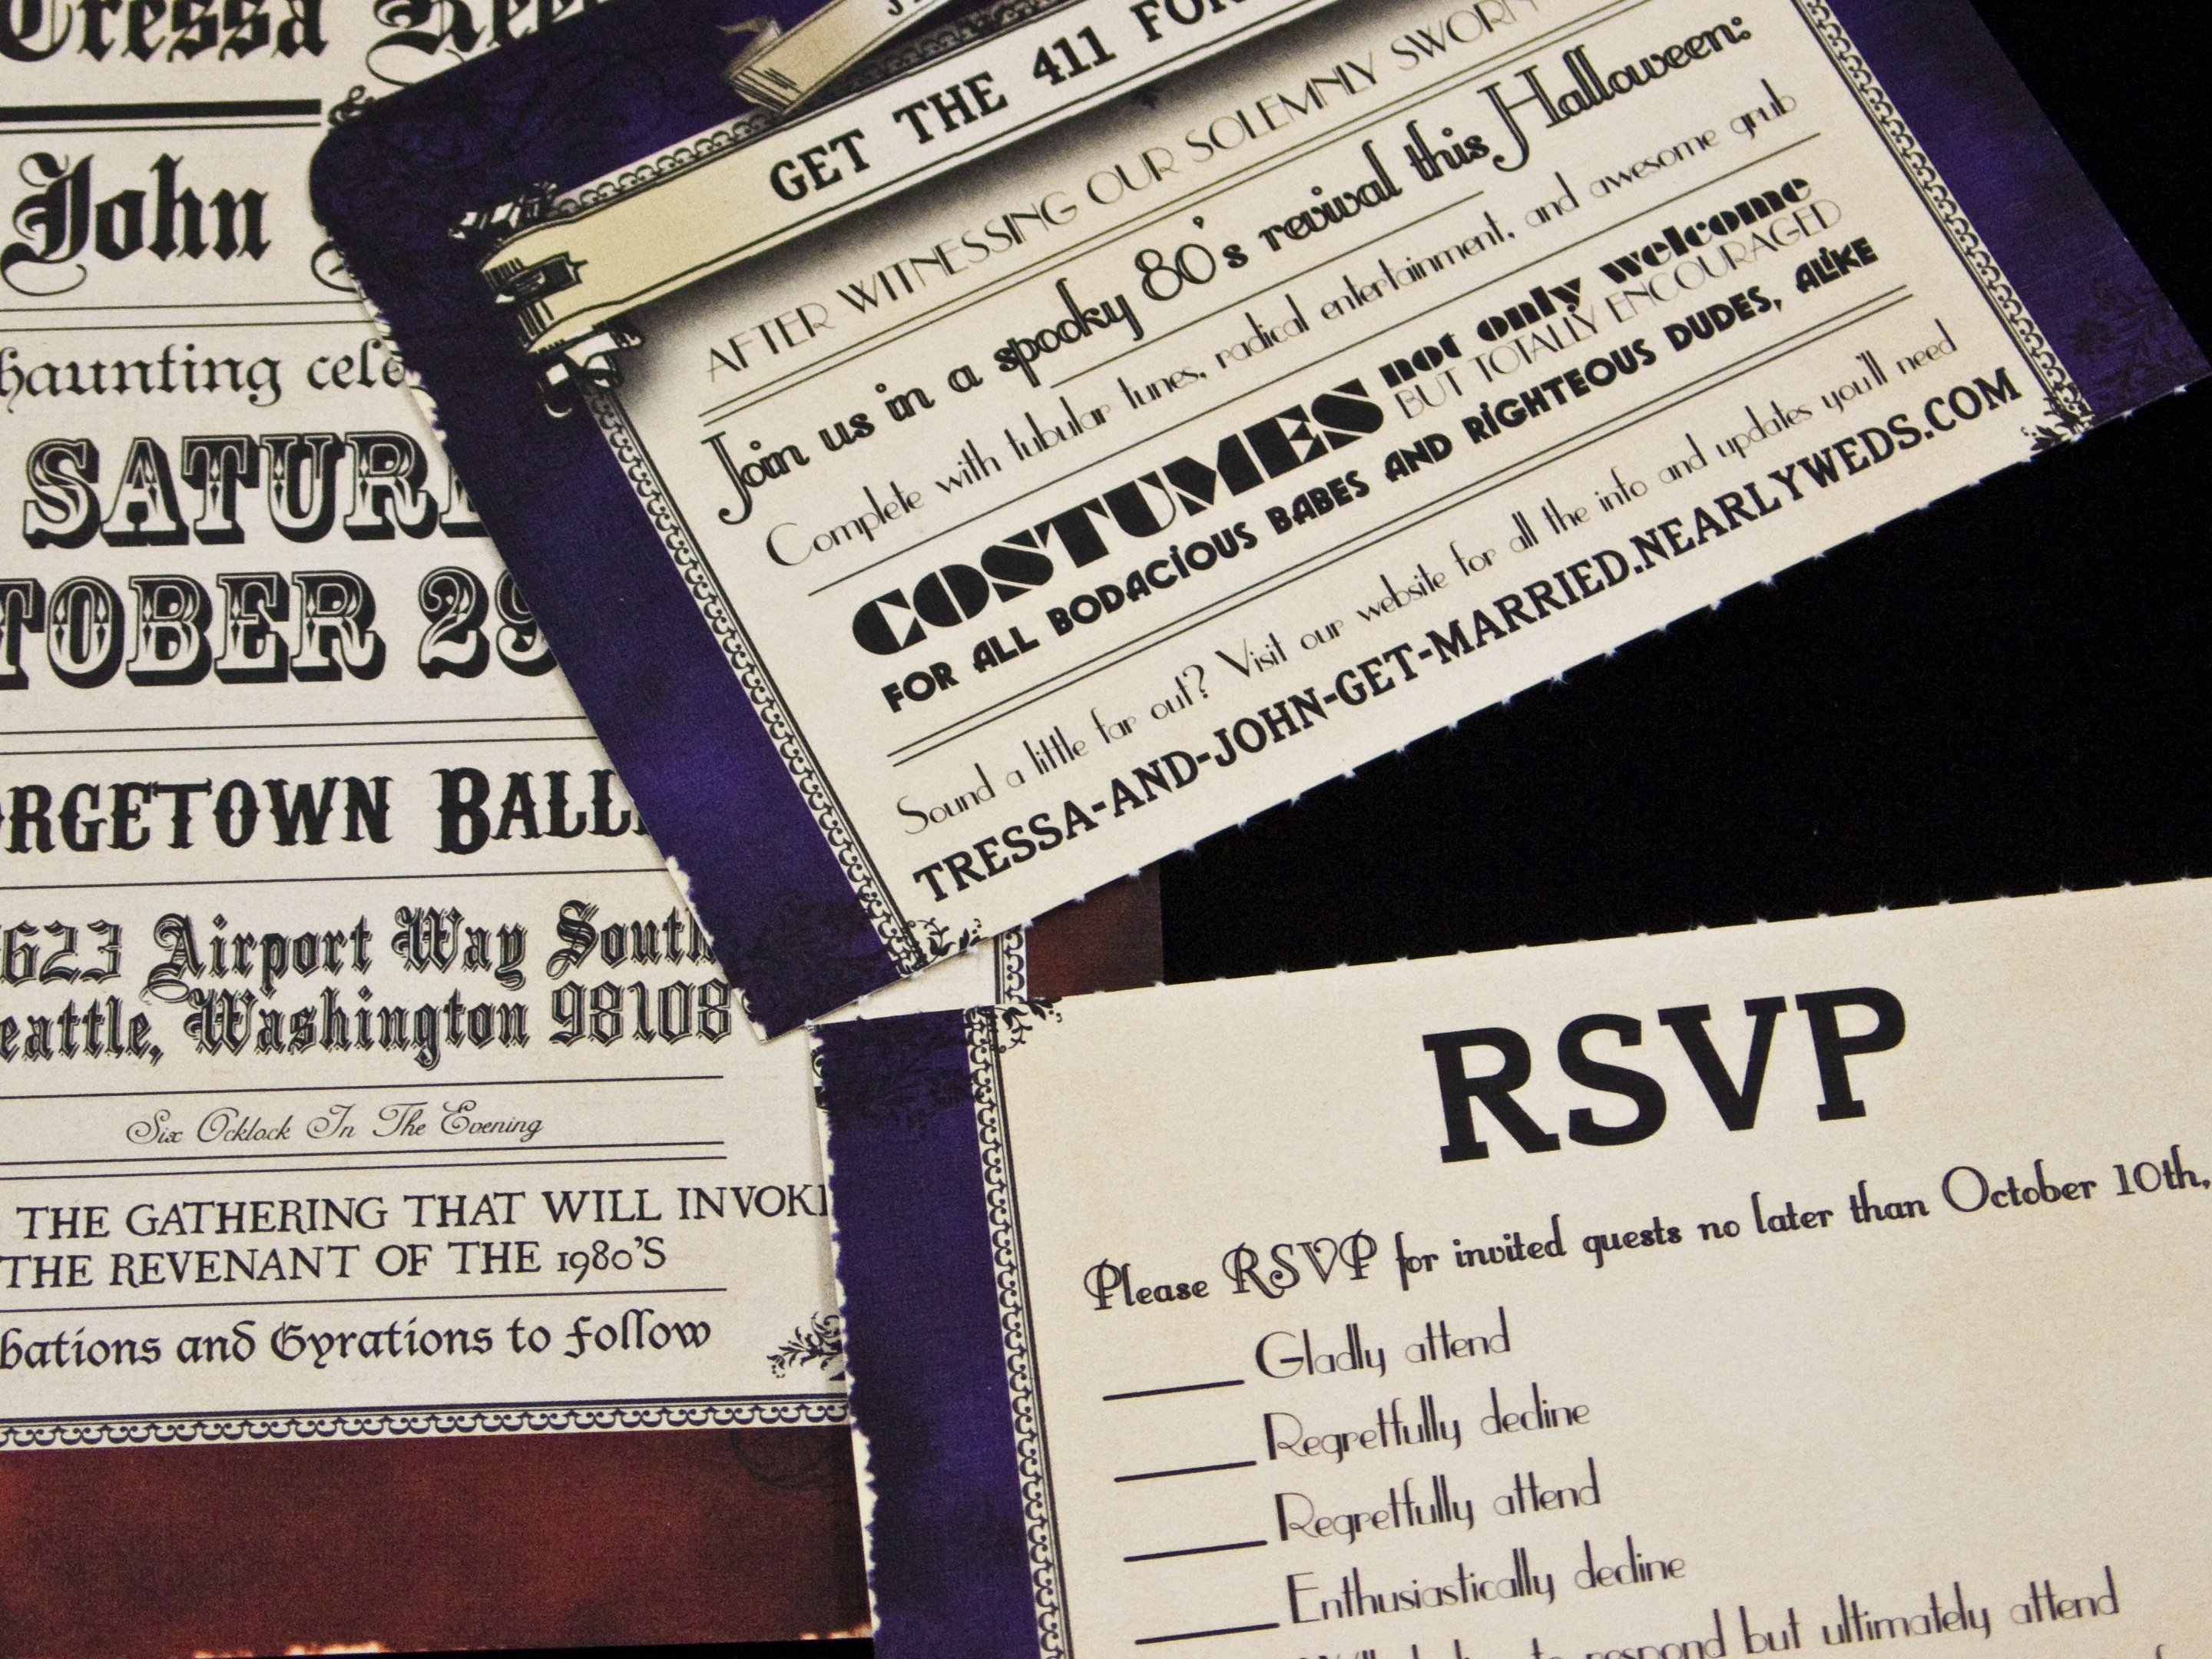 Tressa
John
haunting
SATUR
TOBER 29
RGETOWN BALL
623 Airport Way South
eattle, Washington 98108
Six Ocklock In The Evening
THE GATHERING THAT WILL INVOKE
THE REVENANT OF THE 1980'S
bations and Gyrations to follow
GET THE 411 FOR
AFTER WITNESSING OUR SOLEMNLY SWORN
Join us in a spooky 80's revival this Halloween:
Complete with tubular tunes, radical entertainment, and awesome grub
COSTUMES not only welcome
BUT TOTALLY ENCOURAGED
FOR ALL BODACIOUS BABES AND RIGHTEOUS DUDES, ALIKE
Sound a little far out? Visit our website for all the info and updates you'll need
TRESSA-AND-JOHN-GET-MARRIED.NEARLYWEDS.COM
RSVP
Please RSVP for invited guests no later than October 10th,
Gladly attend
Regretfully decline
Regretfully attend
Enthusiastically decline
respond but ultimately attend